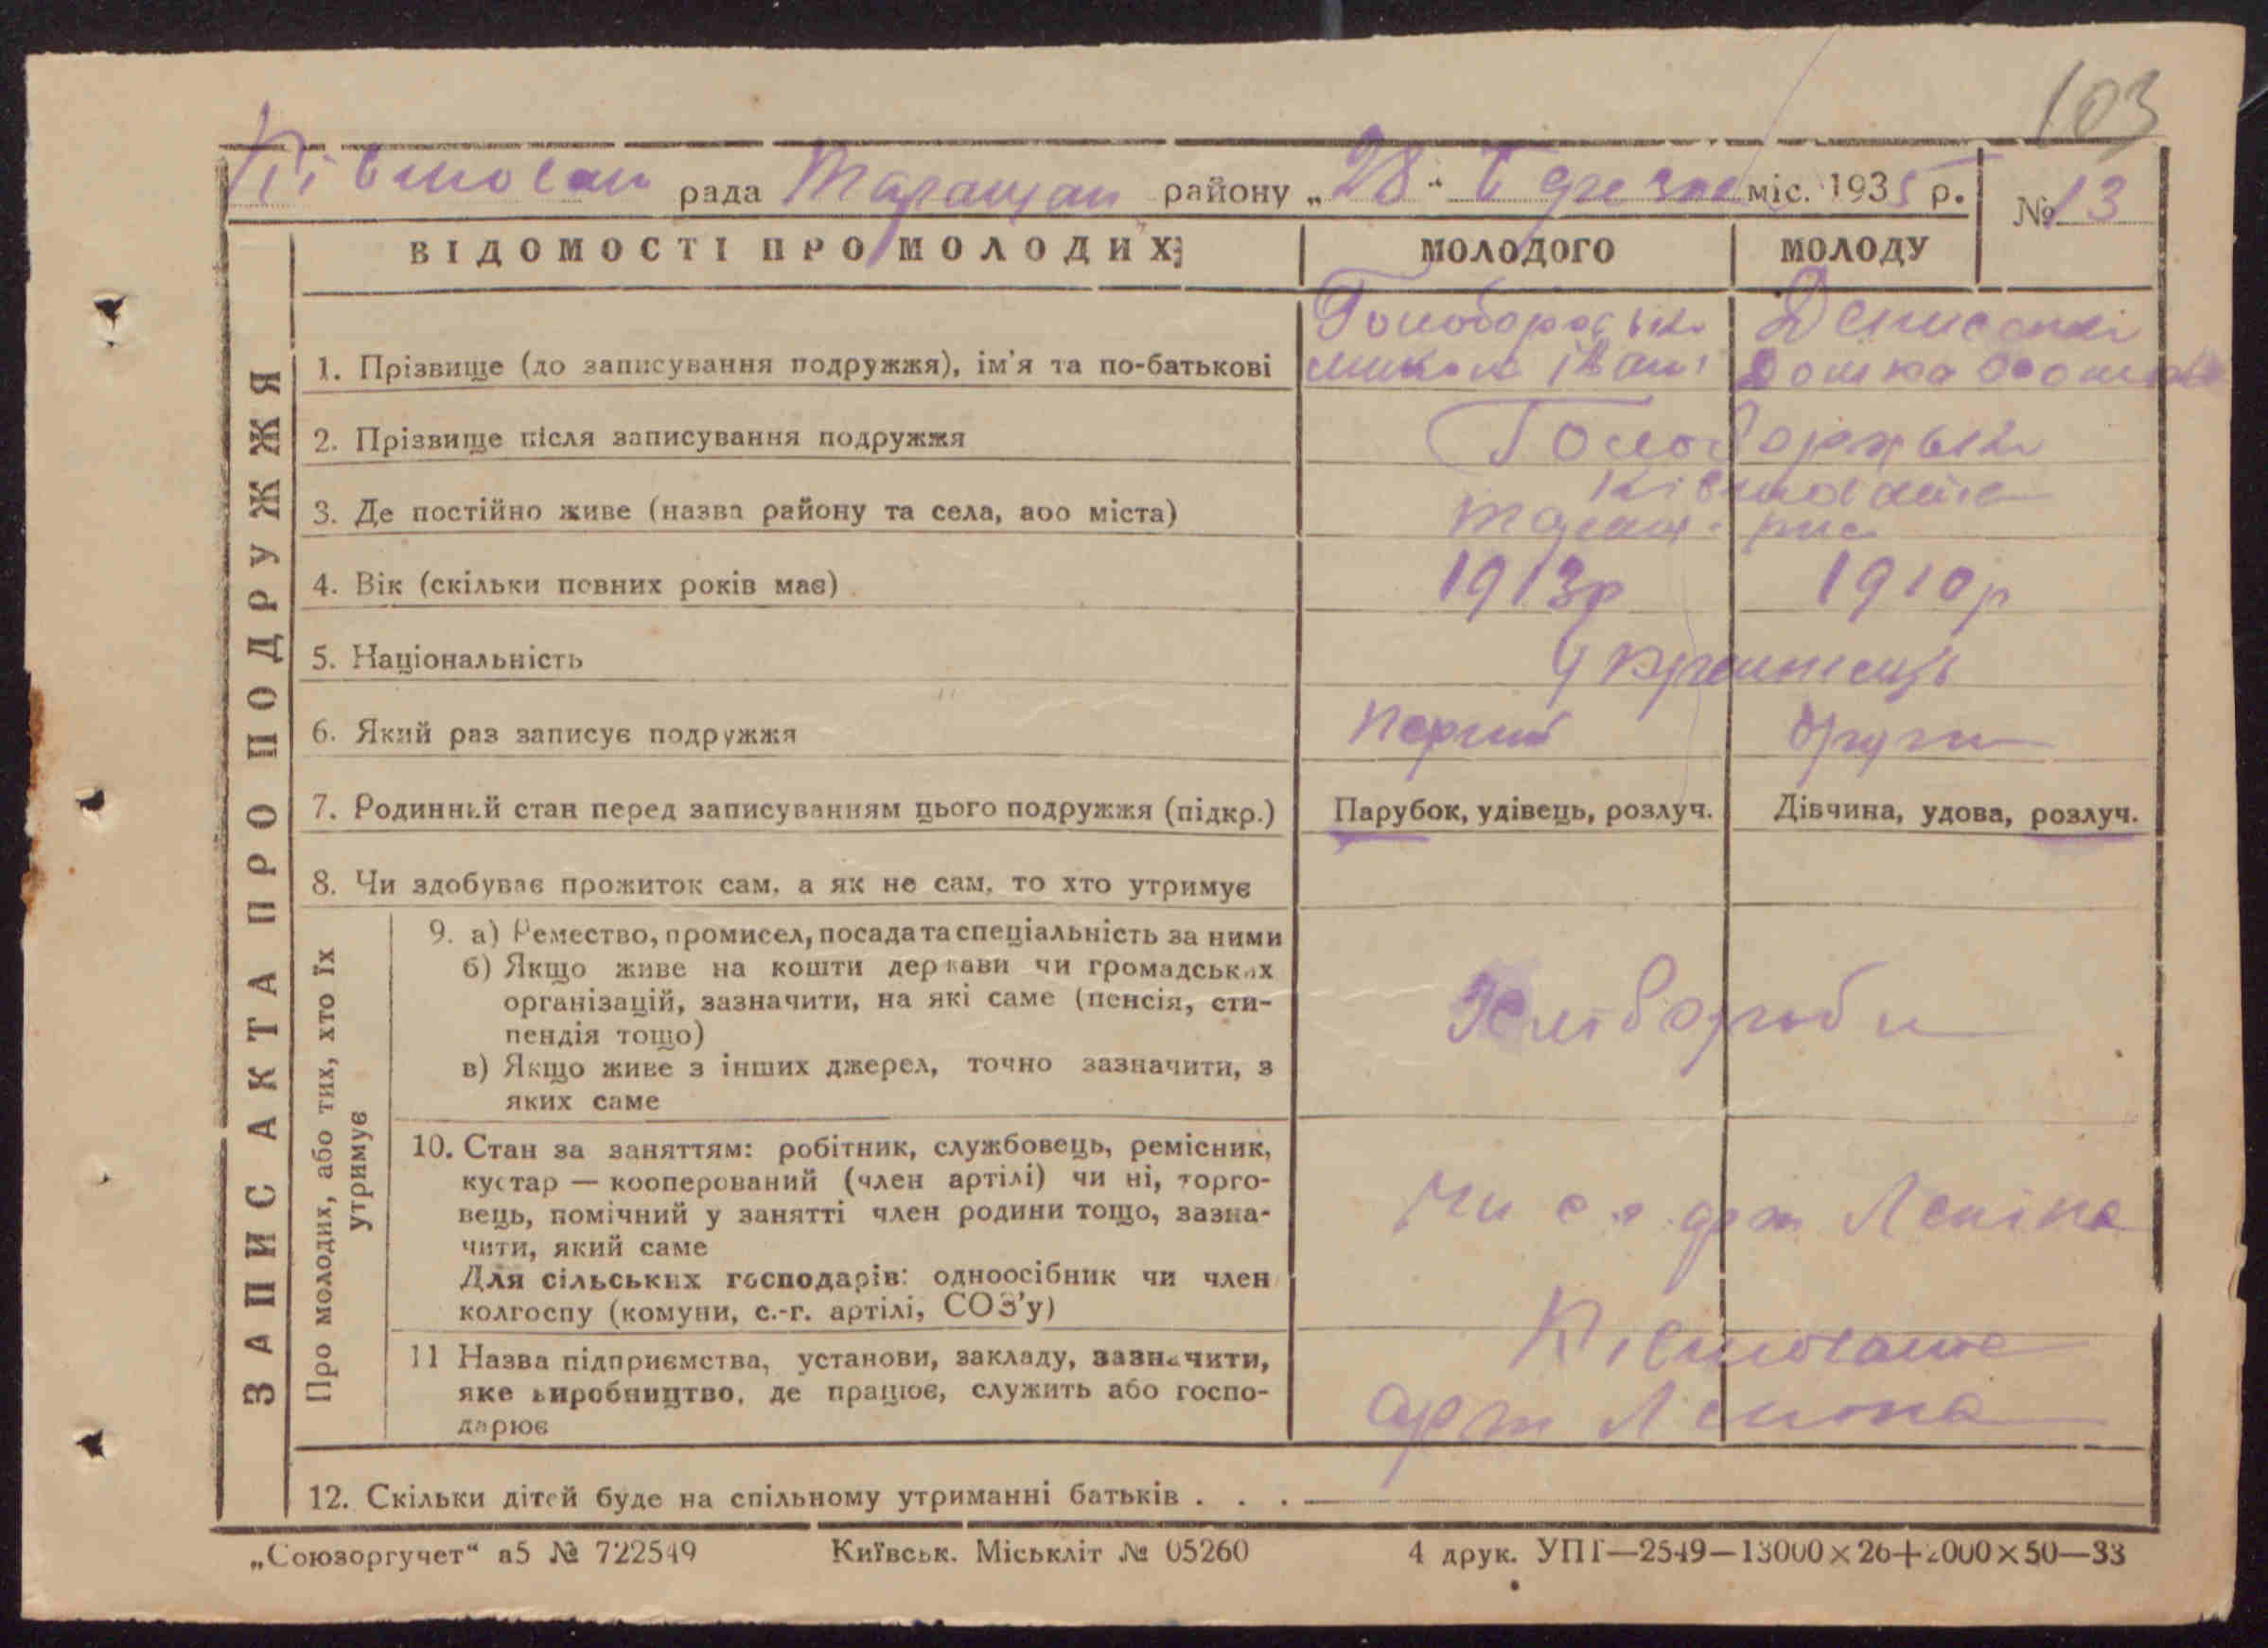 103
Ківшован рада Таращан району „28“ V грезня міс. 1935 р.
№ 13
ВІДОМОСТІ ПРО МОЛОДИХ
МОЛОДОГО
МОЛОДУ
1. Прізвище (до записування подружжя), ім'я та по-батькові
Микола Іван
2. Прізвище після записування подружжя
3. Де постійно живе (назва району та села, або міста)
Таращ.
4. Вік (скільки повних років має)
1913р
1910р
5. Національність
Українець
6. Який раз записує подружжя
перший
други
7. Родинний стан перед записуванням цього подружжя (підкр.)
Парубок, удівець, розлуч.
Дівчина, удова, розлуч.
8. Чи здобуває прожиток сам, а як не сам, то хто утримує
9. а) Ремество, промисел, посада та спеціальність за ними
б) Якщо живе на кошти держави чи громадських
організацій, зазначити, на які саме (пенсія, сти-
пендія тощо)
в) Якщо живе з інших джерел, точно зазначити, з
яких саме
Хлібороби
10. Стан за заняттям: робітник, службовець, ремісник,
кустар — кооперований (член артілі) чи ні, торго-
вець, помічний у занятті член родини тощо, зазна-
чити, який саме
Для сільських господарів: одноосібник чи член
колгоспу (комуни, с.-г. артілі, СОЗ'у)
арт Леніна
11 Назва підприємства, установи, закладу, зазначити,
яке виробництво, де працює, служить або госпо-
дарює
арт Леніна
12. Скільки дітей буде на спільному утриманні батьків . . .
ЗАПИС АКТА ПРО ПОДРУЖЖЯ
Про молодих, або тих, хто їх
утримує
„Союзоргучет“ а5 № 722549
Київськ. Міськліт № 05260
4 друк. УПГ—2549—13000×26+2000×50—33